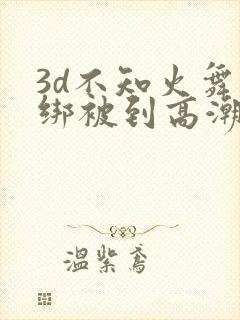 3d不知火舞
绑被到高潮
温紫鸢